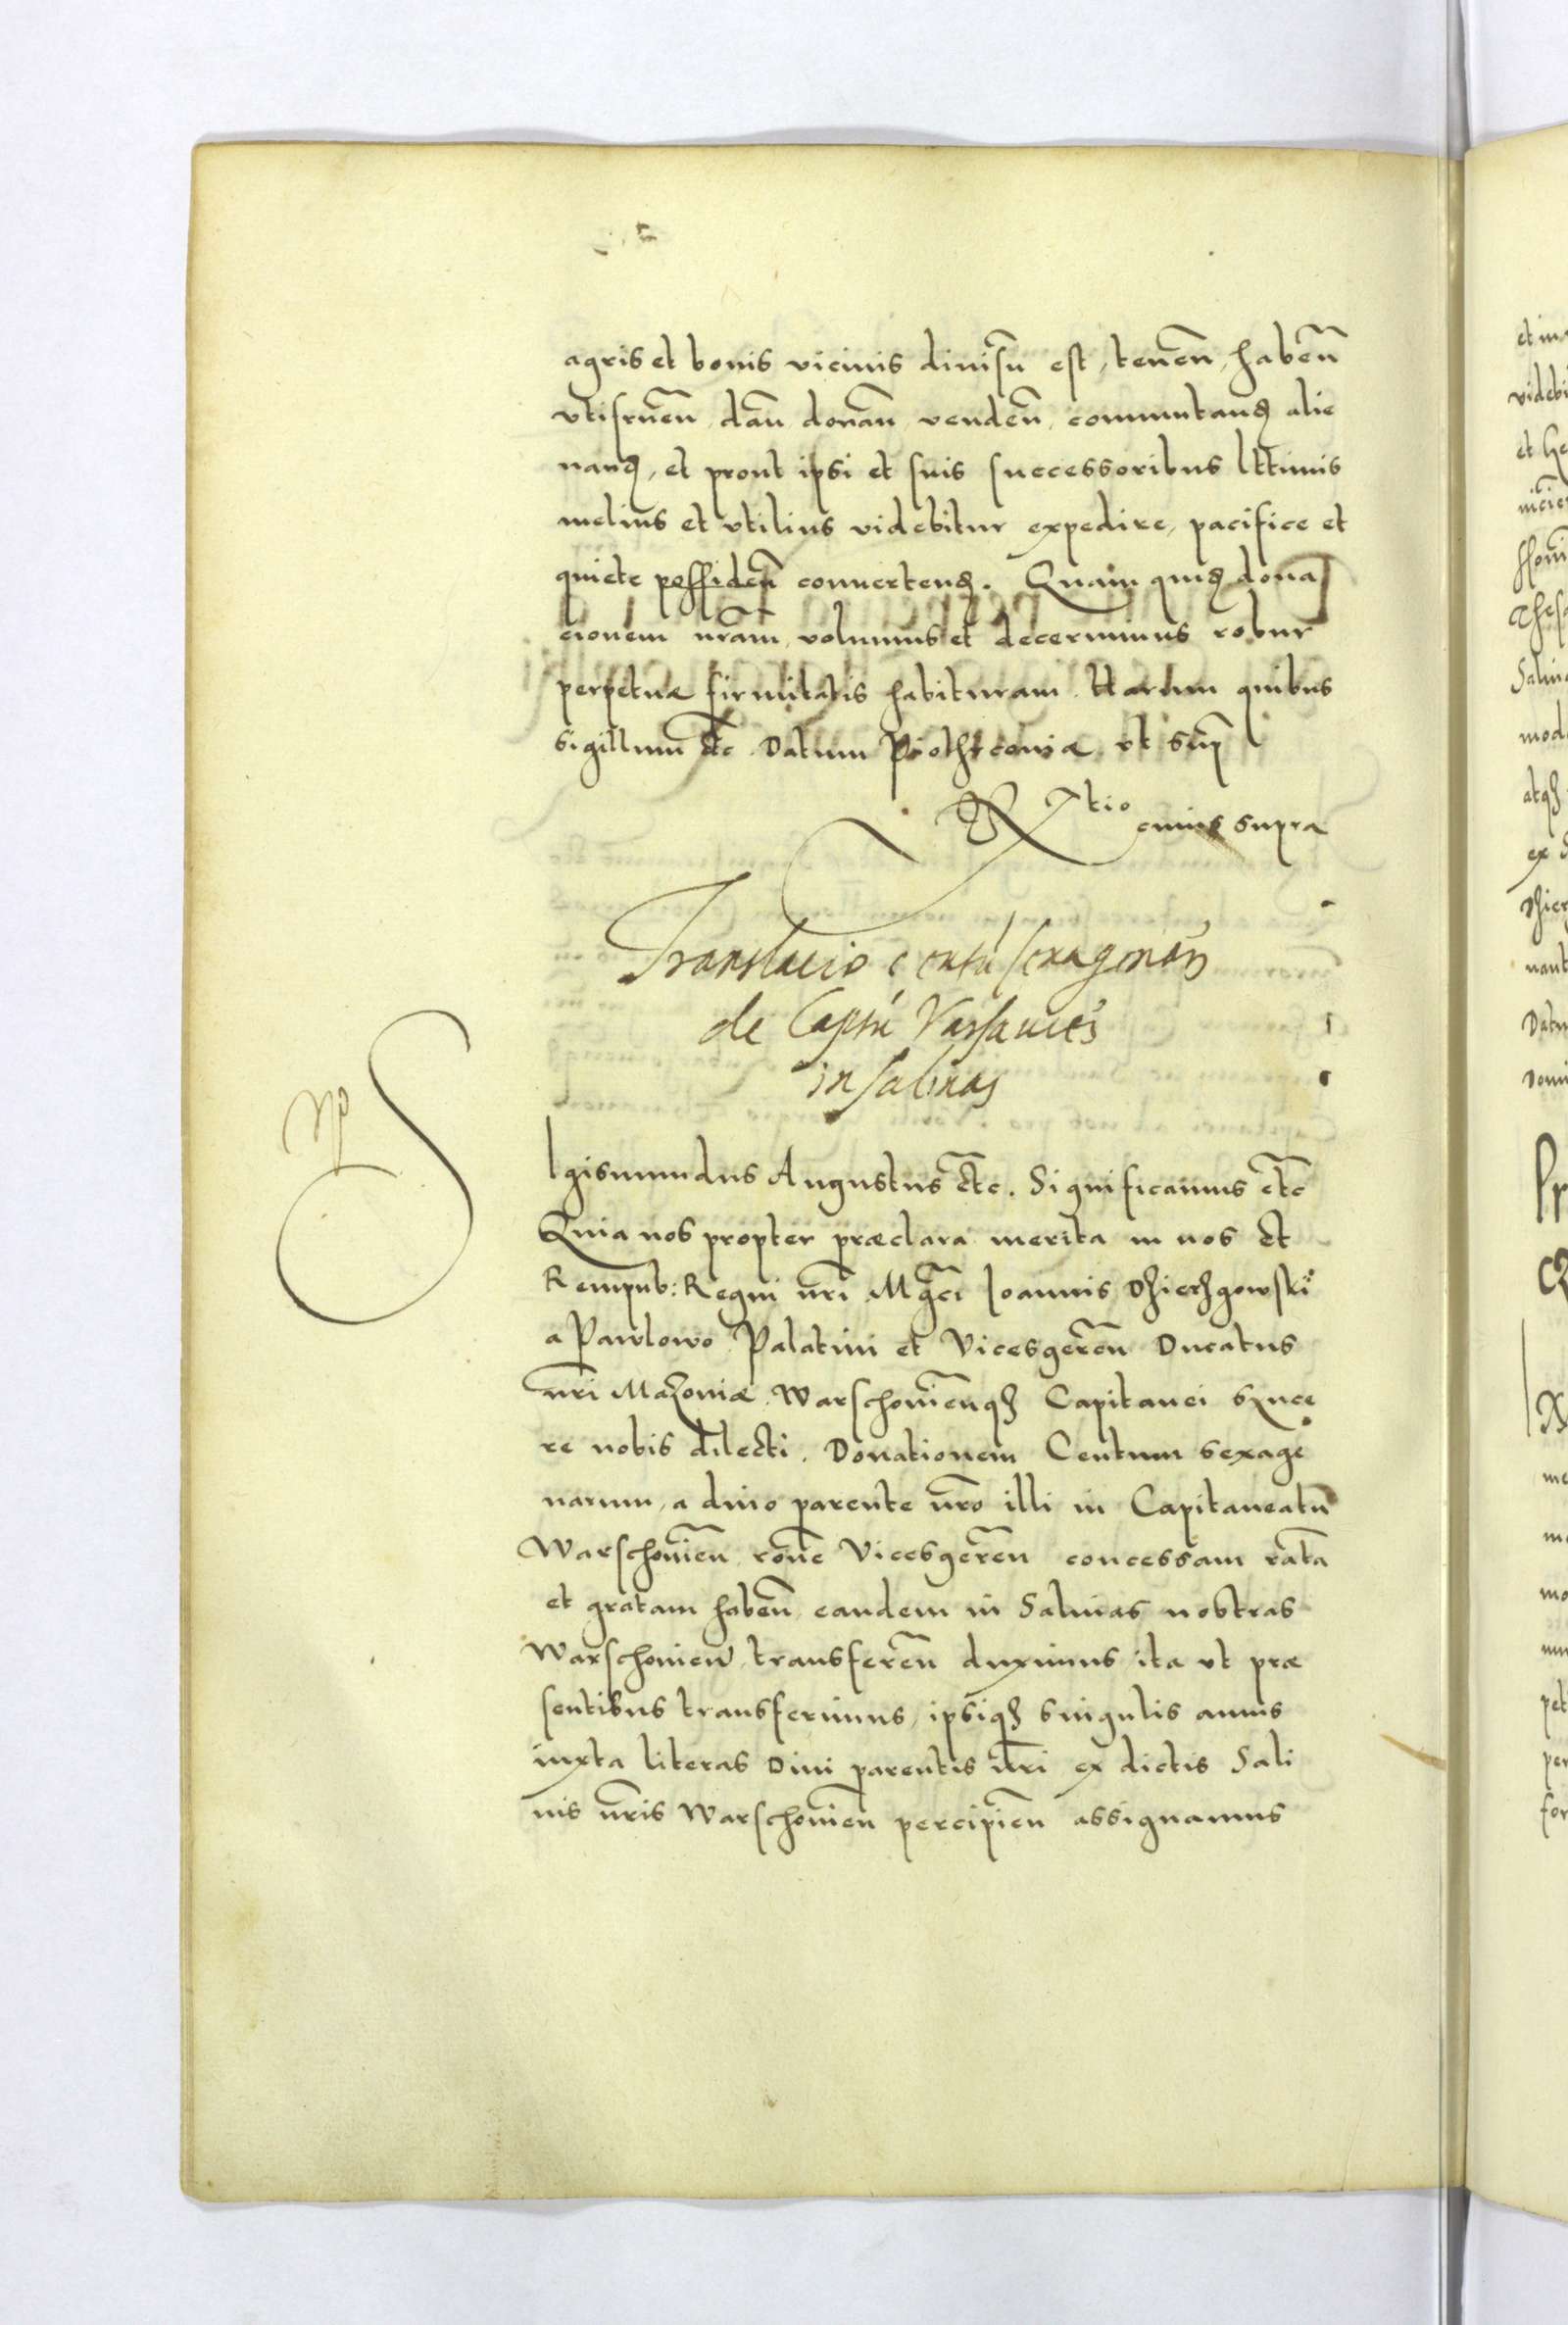 agris et bonis vicinis diuisu̅ est, tenen̅, haben̅
vtifruen̅, dan̅ donan̅ venden̅, commutand alie
nand, et prout ipsi et suis successoribus lttimis
melius et vtilius videbitur expedire, pacifice et
quiete possiden̅ conuertend. Quam quid dona
cionem nr̅am, volumus et decernimus robur
perpetuæ firmitatis habituram. Harum quibus
sigillum etc Datum Piothrcouiæ vt sup̅
R͞tio cuius supra
Translacio centu̅ sexagenar
de Captu Varsauien̅
in salinas
Np
SIgismundus Augustus etc. Significamus etc
Quia nos propter præclara merita in nos et
Rempub: Regni nr̅i Mgci̅ Ioannis Dzierzgowski
a Pawlowo Palatini et Vicesgeren̅ Ducatus
nr̅i Mazouiæ Warschouien̅qz Capitanei synce
re nobis dilecti. Donationem Centum sexage
narum, a diuo parente nr̅o illi in Capitaneatu̅
Warschouien̅ ron̅e Vicesgeren̅ concessam rata̅
et gratam haben̅ eandem in Salinas nostras
Warschouien̅ transferen̅ duximus ita vt præ
sentibus transferimus, ipsiqz singulis annis
iuxta literas Diui parentis nr̅i ex dictis Sali
nis nr̅is Warschouien̅ percipien̅ assignamus